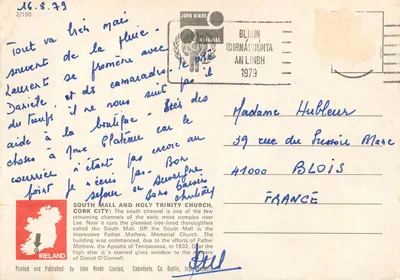 16.8.79
2/150
JOHN HINDE
ORIGINAL
BLIAIN
IDIRNÁISIÚNTA
AN LINBH
1979
Tout va bien mais
souvent de la pluie.
Laurent se promène avec
Daniele et des camarades. Je
du temps il ne nous suit pas il
aide à la boutique - Dis des
choses à Mme Plateau car le
courrier n'étant pas encore au
point je n'écris pas. Bon
séjour en Auvergne
Bons baisers
Madame Hubleur
39 rue du
41000 BLOIS
FRANCE
SOUTH MALL AND HOLY TRINITY CHURCH,
CORK CITY: The south channel is one of the few
remaining channels of the early city, more complex near
Lee. Now it runs the pleasant tree-lined thoroughfare
called the South Mall. Off the South Mall is the
impressive Father Mathew Memorial Church. The
building was commenced, due to the efforts of Father
Mathew, the Apostle of Temperance, in 1832. Over the
high altar is a stained glass window to the memory
of Daniel O'Connell.
IRELAND
Printed and Published by John Hinde Limited, Cabinteely, Co. Dublin,